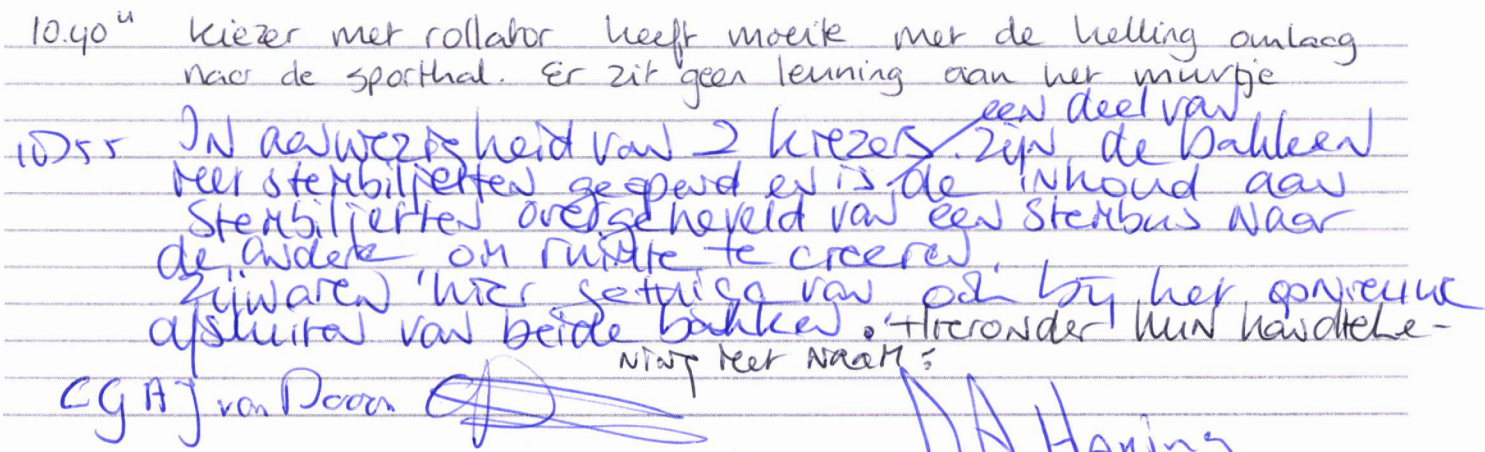 10.40u kiezer met rollator heeft moeite met de helling omlaag
naar de sporthal. Er zit geen leuning aan het muurtje
een deel van
10)55 IN aanwezigheid van 2 kiezers zijn de bakken
met stembiljetten geopend en is de inhoud aan
stembiljetten overgeheveld van een stembus naar
de andere om ruimte te creeren.
Zij waren hier getuige van ook bij het opnieuw
afsluiten van beide bakken. Hieronder hun handteke-
ning met naam:
CGAJ van Doorn
DA Haning